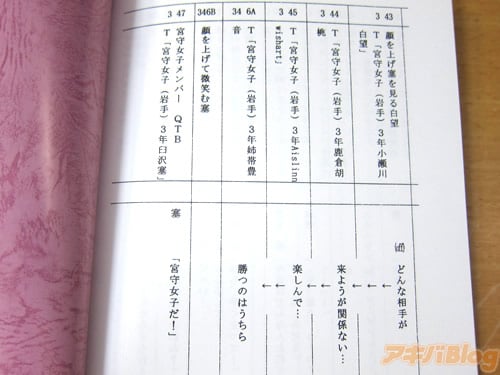 3 43
顔を上げ塞を見る白望
T「宮守女子(岩手)3年小瀬川
白望」
3 44
T「宮守女子(岩手)3年鹿倉胡
桃」
3 45
T「宮守女子(岩手)3年Aislinn
wishart」
34 6A
T「宮守女子(岩手)3年姉帯豊
音」
346B
顔を上げて微笑む塞
3 47
宮守女子メンバー QTB
T「宮守女子(岩手)3年臼沢塞」
どんな相手が
←
←
来ようが関係ない…
←
←
楽しんで…
←
←
勝つのはうちら
塞
「宮守女子だ!」
アキバBlog